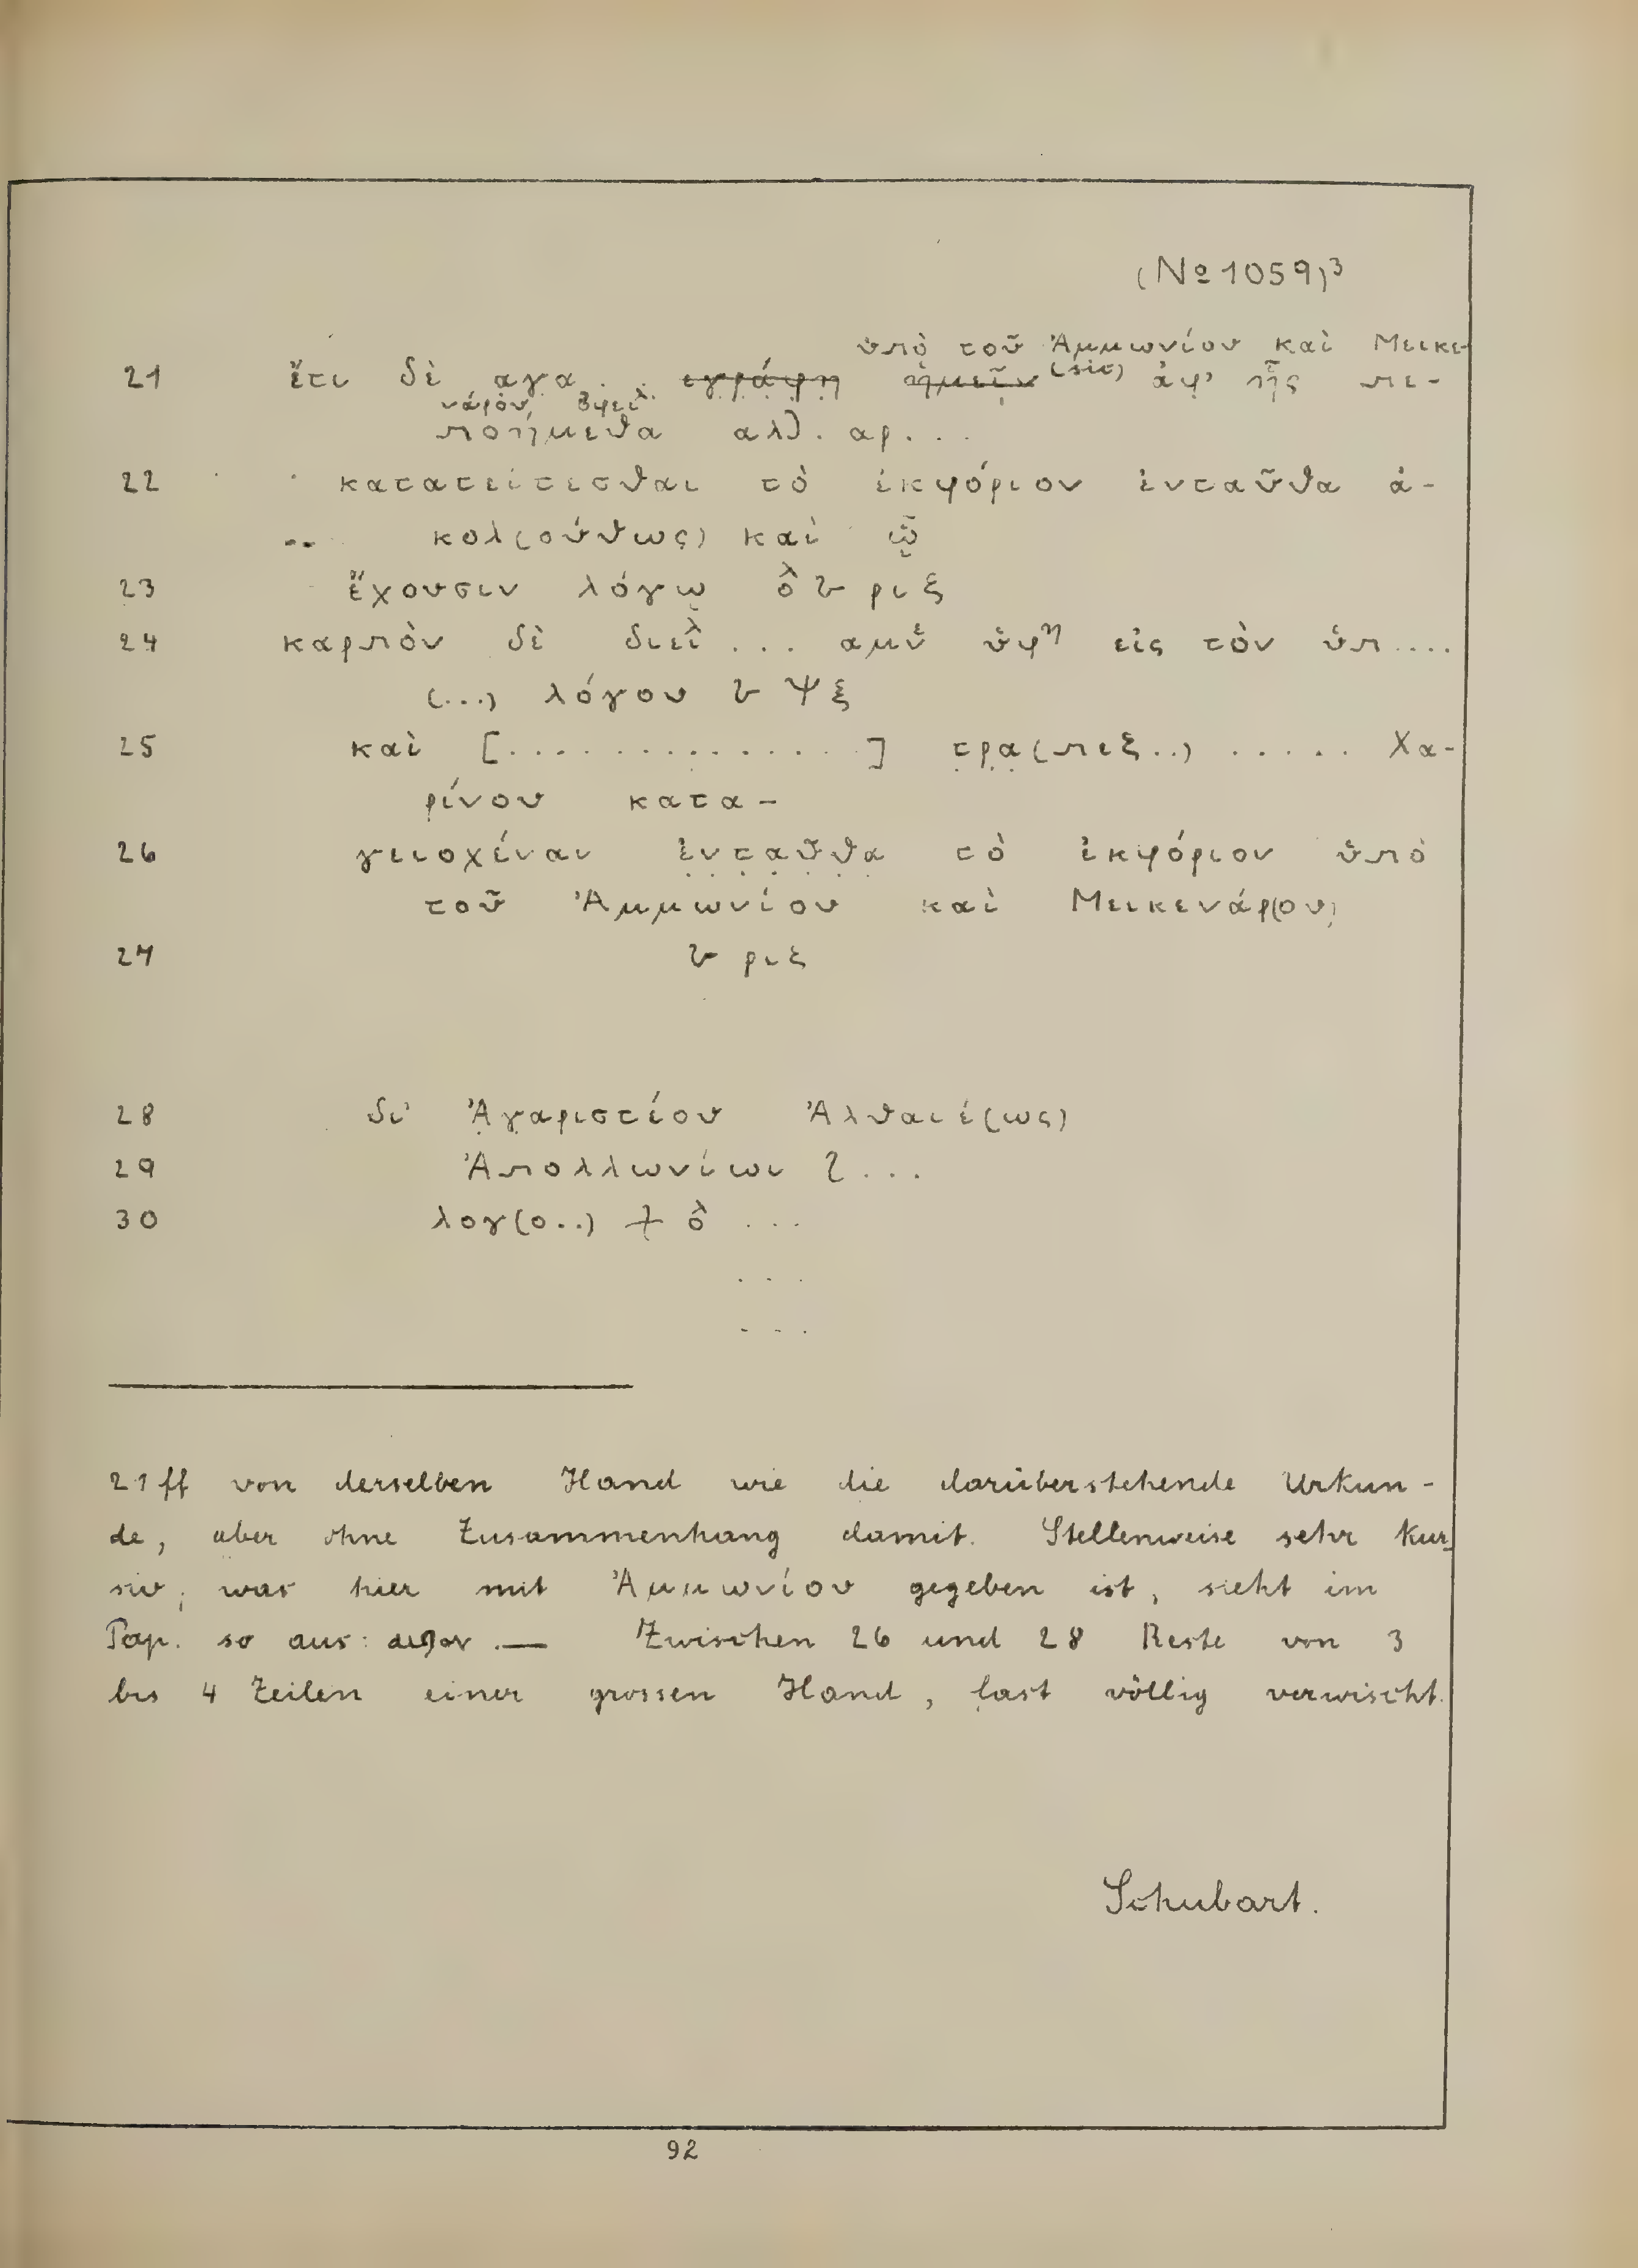 (№ 1059)³
ὑπὸ τοῦ Ἀμμωνίου καὶ Μεικε-
21 ἔτι δὲ αγα . . εγράφη ἡμεῖν (sic) ἀφ' ἧς πε-
νάρου
ποήμεθα αλλ . αρ . . .
22 κατατείτεσθαι τὸ ἐκφόριον ἐνταῦθα ἀ-
κολ(ούθως) καὶ ᾧ
23 ἔχουσιν λόγῳ ριξ
24 καρπὸν δὲ διει^λ . . . αμν^ε ὑφ^η εἰς τὸν ὑπ . . . .
(...) λόγου Ψξ
25 καὶ [. . . . . . . . . . . . . .] τρα(πεζ..) . . . . . Χα-
ρίνου κατα-
26 γειοχέναι ἐνταῦθα τὸ ἐκφόριον ὑπὸ
τοῦ Ἀμμωνίου καὶ Μεικενάρ(ου)
27 ριξ
28 δι' Ἀγαριστέου Ἀλθαιέ(ως)
29 Ἀπολλωνίωι . . .
30 λογ(ο..) . . .
. . .
. . .
21 ff von derselben Hand wie die darüberstehende Urkun-
de, aber ohne Zusammenhang damit. Stellenweise sehr kur-
siv; was hier mit Ἀμμωνίου gegeben ist, sieht im
Pap. so aus: — Zwischen 26 und 28 Reste von 3
bis 4 Zeilen einer grossen Hand, fast völlig verwischt.
Schubart.
92